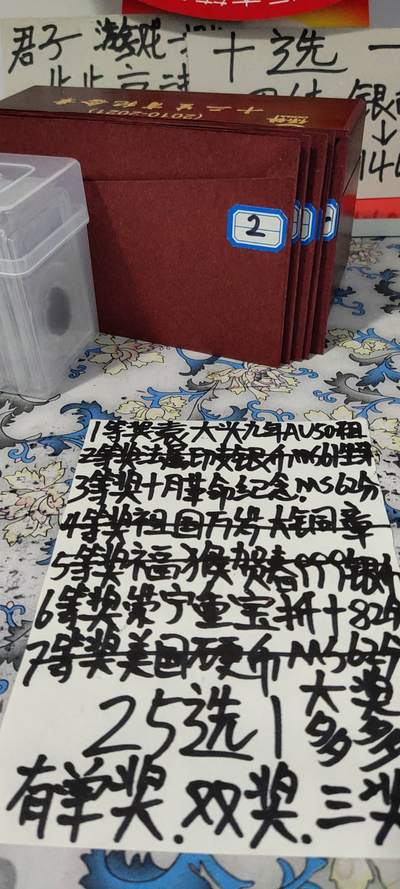 君子 游戏
十选一
银
↓
146
十二生肖纪念章
(2010-2021)
2
1等奖袁大头九年AU50粗
2等奖法属印支银币MS61坐洋
3等奖十月革命纪念.MS62分
4等奖祖国万岁大铜章
5等奖福猴贺春999银币
6等奖崇宁重宝折十82分
7等奖美国硬币MS62分
25选1
大奖
多多
有单奖.双奖.三奖